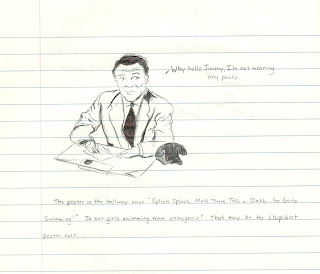 Why hello Jimmy, I'm not wearing
any pants.
The poster in the hallway says "Splish Splash, More Than Take a Bath, Go Girls
Swimming!" Is our girls swimming team unhygenic? That may be the stupidest
poster ever.